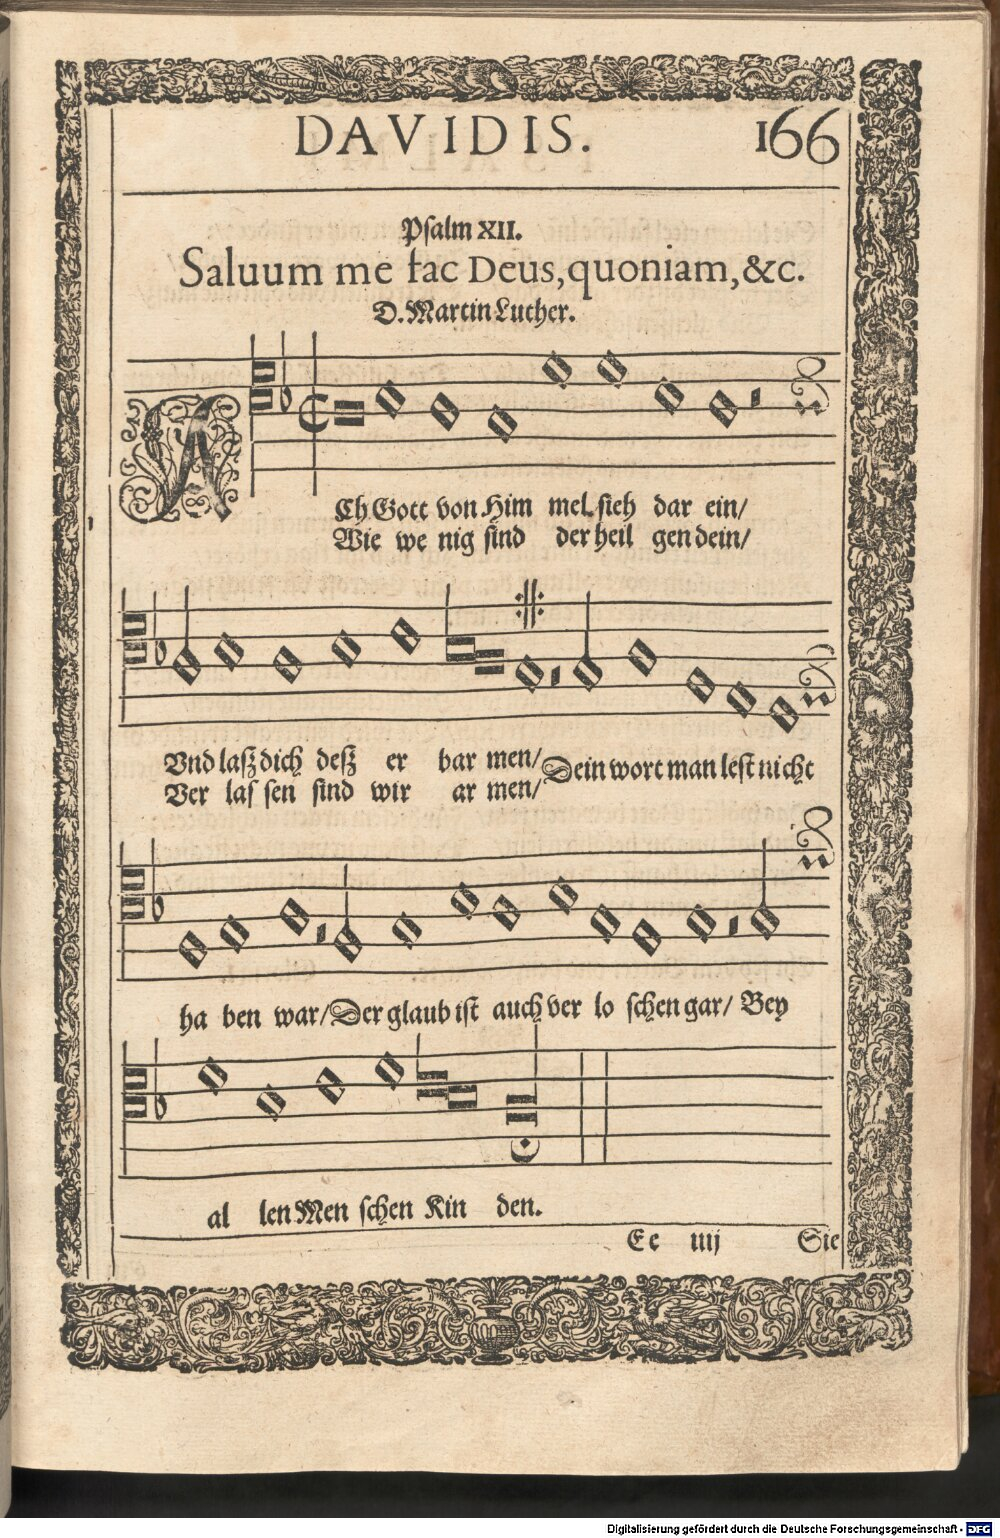 DAVIDIS. 166
Psalm XII.
Saluum me fac Deus, quoniam, &c.
D. Martin Luther.
ACh Gott von Him mel sieh dar ein/
Wie we nig sind der heil gen dein/
Vnd laſz dich deſz er bar men/ Dein wort man lest nicht
Ver las sen sind wir ar men/
ha ben war/ Der glaub ist auch ver lo schen gar/ Bey
al len Men schen Kin den.
Ee iiij Sie
Digitalisierung gefördert durch die Deutsche Forschungsgemeinschaft - DFG